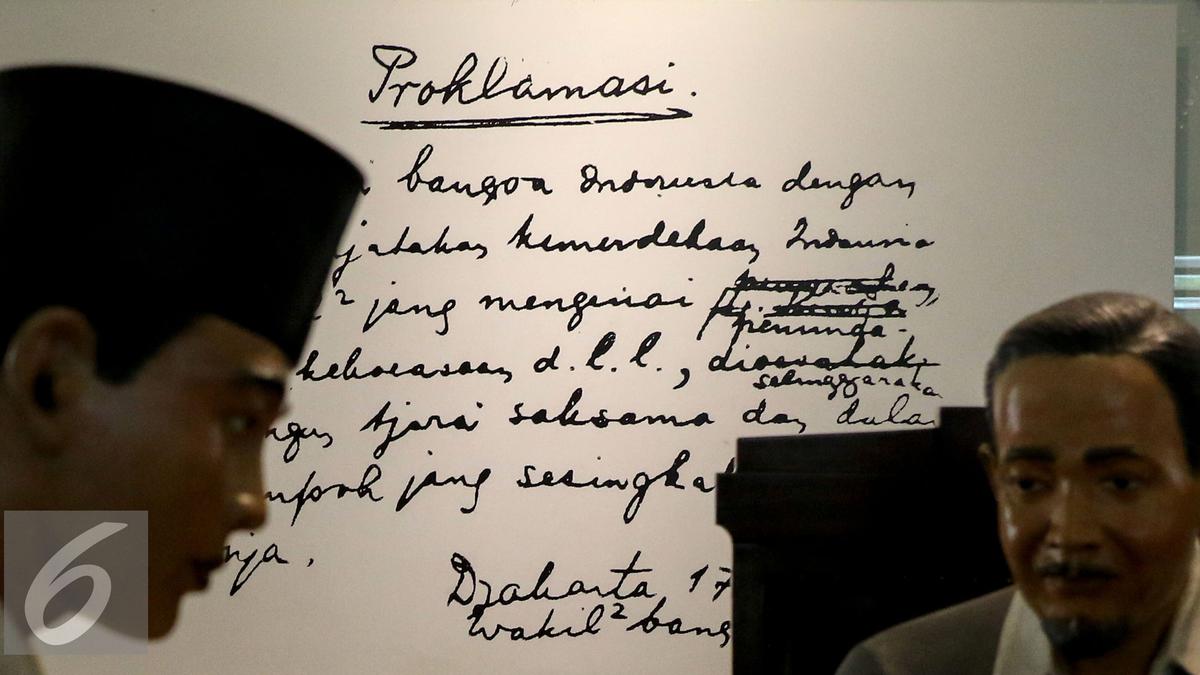 Proklamasi.
bangsa Indonesia dengan
jatakan kemerdekaan Indonesia
2 jang mengenai
penunda-
kekoeasaan d.l.l., dioesahak
tjara saksama dan dala
mpoh jang sesingka
nja.
Djakarta 17
Wakil2 bang
6